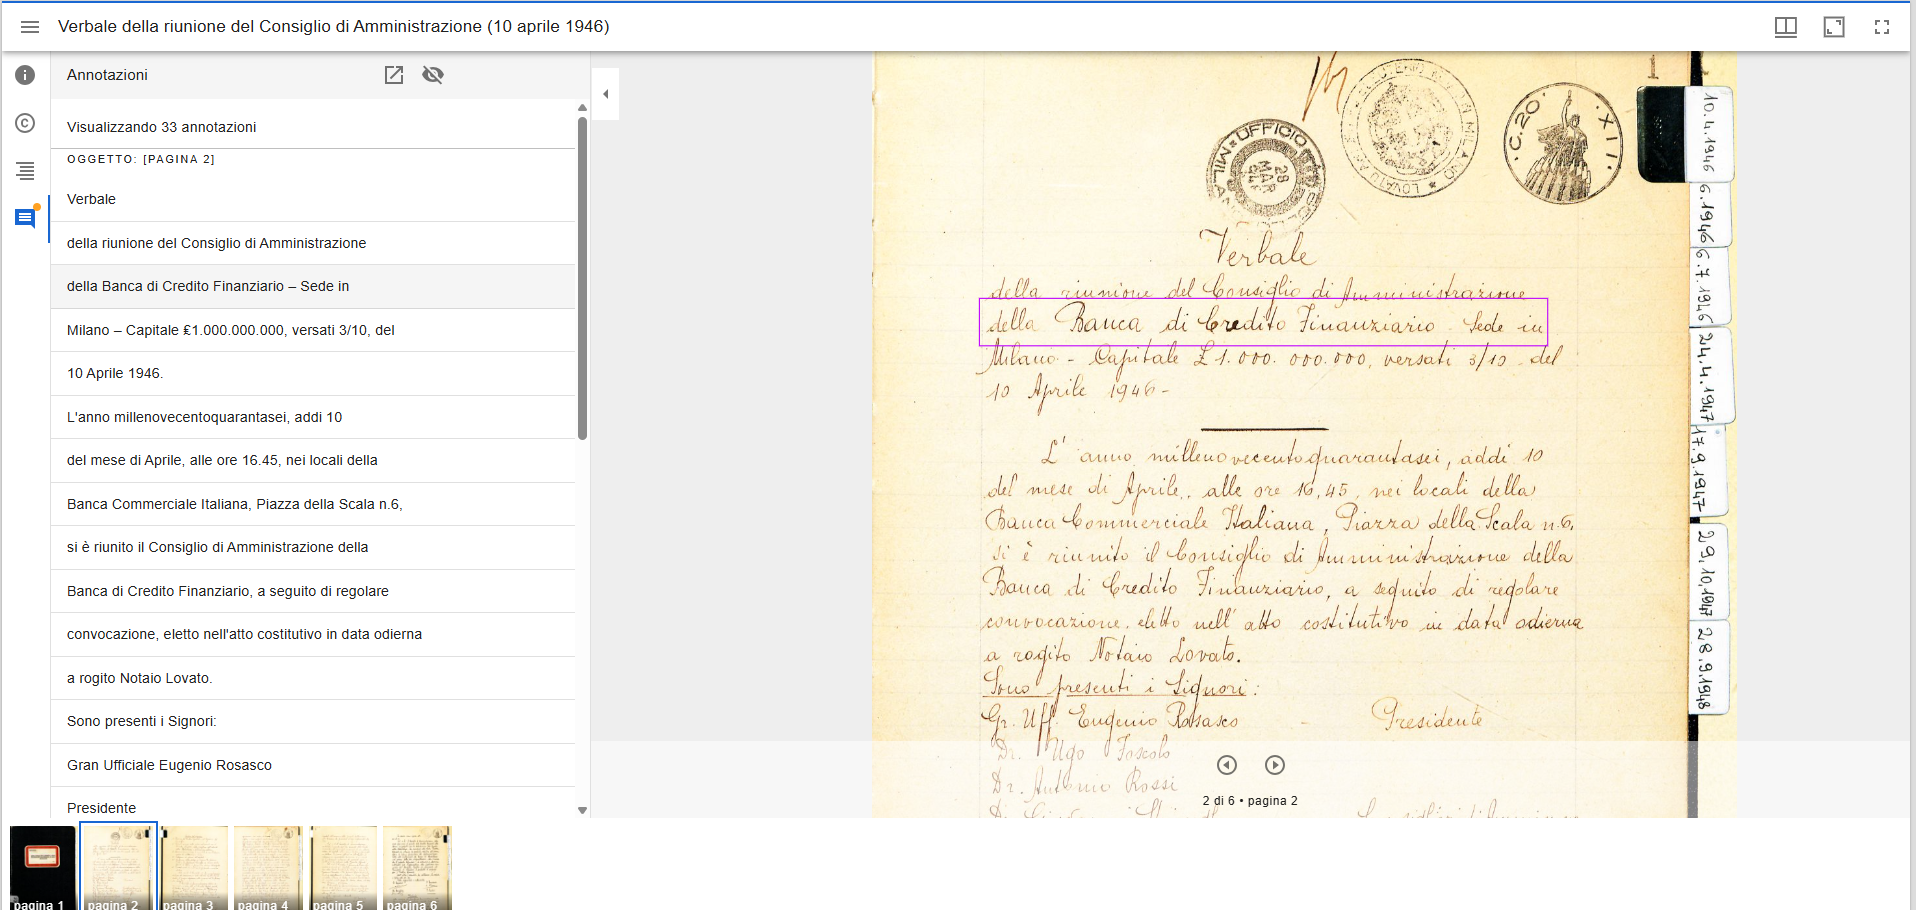 Verbale della riunione del Consiglio di Amministrazione (10 aprile 1946)
Annotazioni
Visualizzando 33 annotazioni
OGGETTO: [PAGINA 2]
Verbale
della riunione del Consiglio di Amministrazione
della Banca di Credito Finanziario – Sede in
Milano – Capitale ₤1.000.000.000, versati 3/10, del
10 Aprile 1946.
L'anno millenovecentoquarantasei, addi 10
del mese di Aprile, alle ore 16.45, nei locali della
Banca Commerciale Italiana, Piazza della Scala n.6,
si è riunito il Consiglio di Amministrazione della
Banca di Credito Finanziario, a seguito di regolare
convocazione, eletto nell'atto costitutivo in data odierna
a rogito Notaio Lovato.
Sono presenti i Signori:
Gran Ufficiale Eugenio Rosasco
Presidente
1
UFFICIO
MILANO
28
MAR
MILANO * LOVATO
C.20
XII
Verbale
della riunione del Consiglio di Amministrazione
della Banca di Credito Finanziario - Sede in
Milano - Capitale £ 1.000.000.000, versati 3/10 - del
10 Aprile 1946 -
L'anno millenovecentoquarantasei, addi 10
del mese di Aprile, alle ore 16,45, nei locali della
Banca Commerciale Italiana, Piazza della Scala n.6,
si è riunito il Consiglio di Amministrazione della
Banca di Credito Finanziario, a seguito di regolare
convocazione, eletto nell'atto costitutivo in data odierna
a rogito Notaio Lovato.
Sono presenti i Signori:
Gr. Uff. Eugenio Rosasco - Presidente
Dr. Ugo Foscolo
Dr. Antonio Rossi
10.4.1946
6.1946
6.7.1946
24.4.1947
17.9.1947
29.10.1947
28.9.1948
2 di 6 • pagina 2
pagina 1
pagina 2
pagina 3
pagina 4
pagina 5
pagina 6